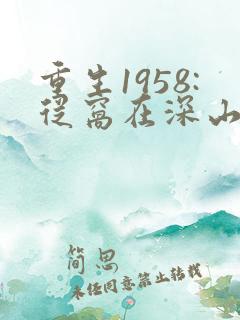 重生1958:
从窝在深山
简思
未经同意禁止转载